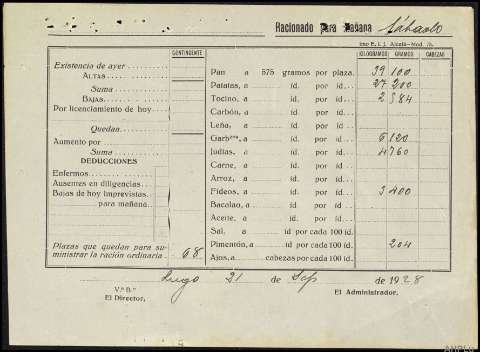 Racionado Para Mañana Sábado
Imp E. t. j. Alcalá-Mod.
CONTINGENTE
KILOGRAMOS GRAMOS CABEZAS
Existencia de ayer
ALTAS
Suma
BAJAS
Por licenciamiento de hoy
Quedan
Aumento por
Suma
DEDUCCIONES
Enfermos
Ausentes en diligencias
Bajas de hoy imprevistas
para mañana
Plazas que quedan para su-
ministrar la ración ordinaria 68
Pan a 575 gramos por plaza. 39 100
Patatas, a id. por id 27 200
Tocino, a id. por id 2 584
Carbón, a id. por id
Leña, a id. por id
Garbzos, a id. por id 6 120
Judías, a id. por id 4 760
Carne, a id. por id
Arroz, a id. por id
Fideos, a id. por id 3 400
Bacalao, a id. por id
Aceite, a id. por id
Sal, a id por cada 100 id.
Pimentón, a id por cada 100 id. 204
Ajos, a cabezas por cada 100 id.
Lugo 21 de Sep de 1928
V.º B.º
El Director,
El Administrador,